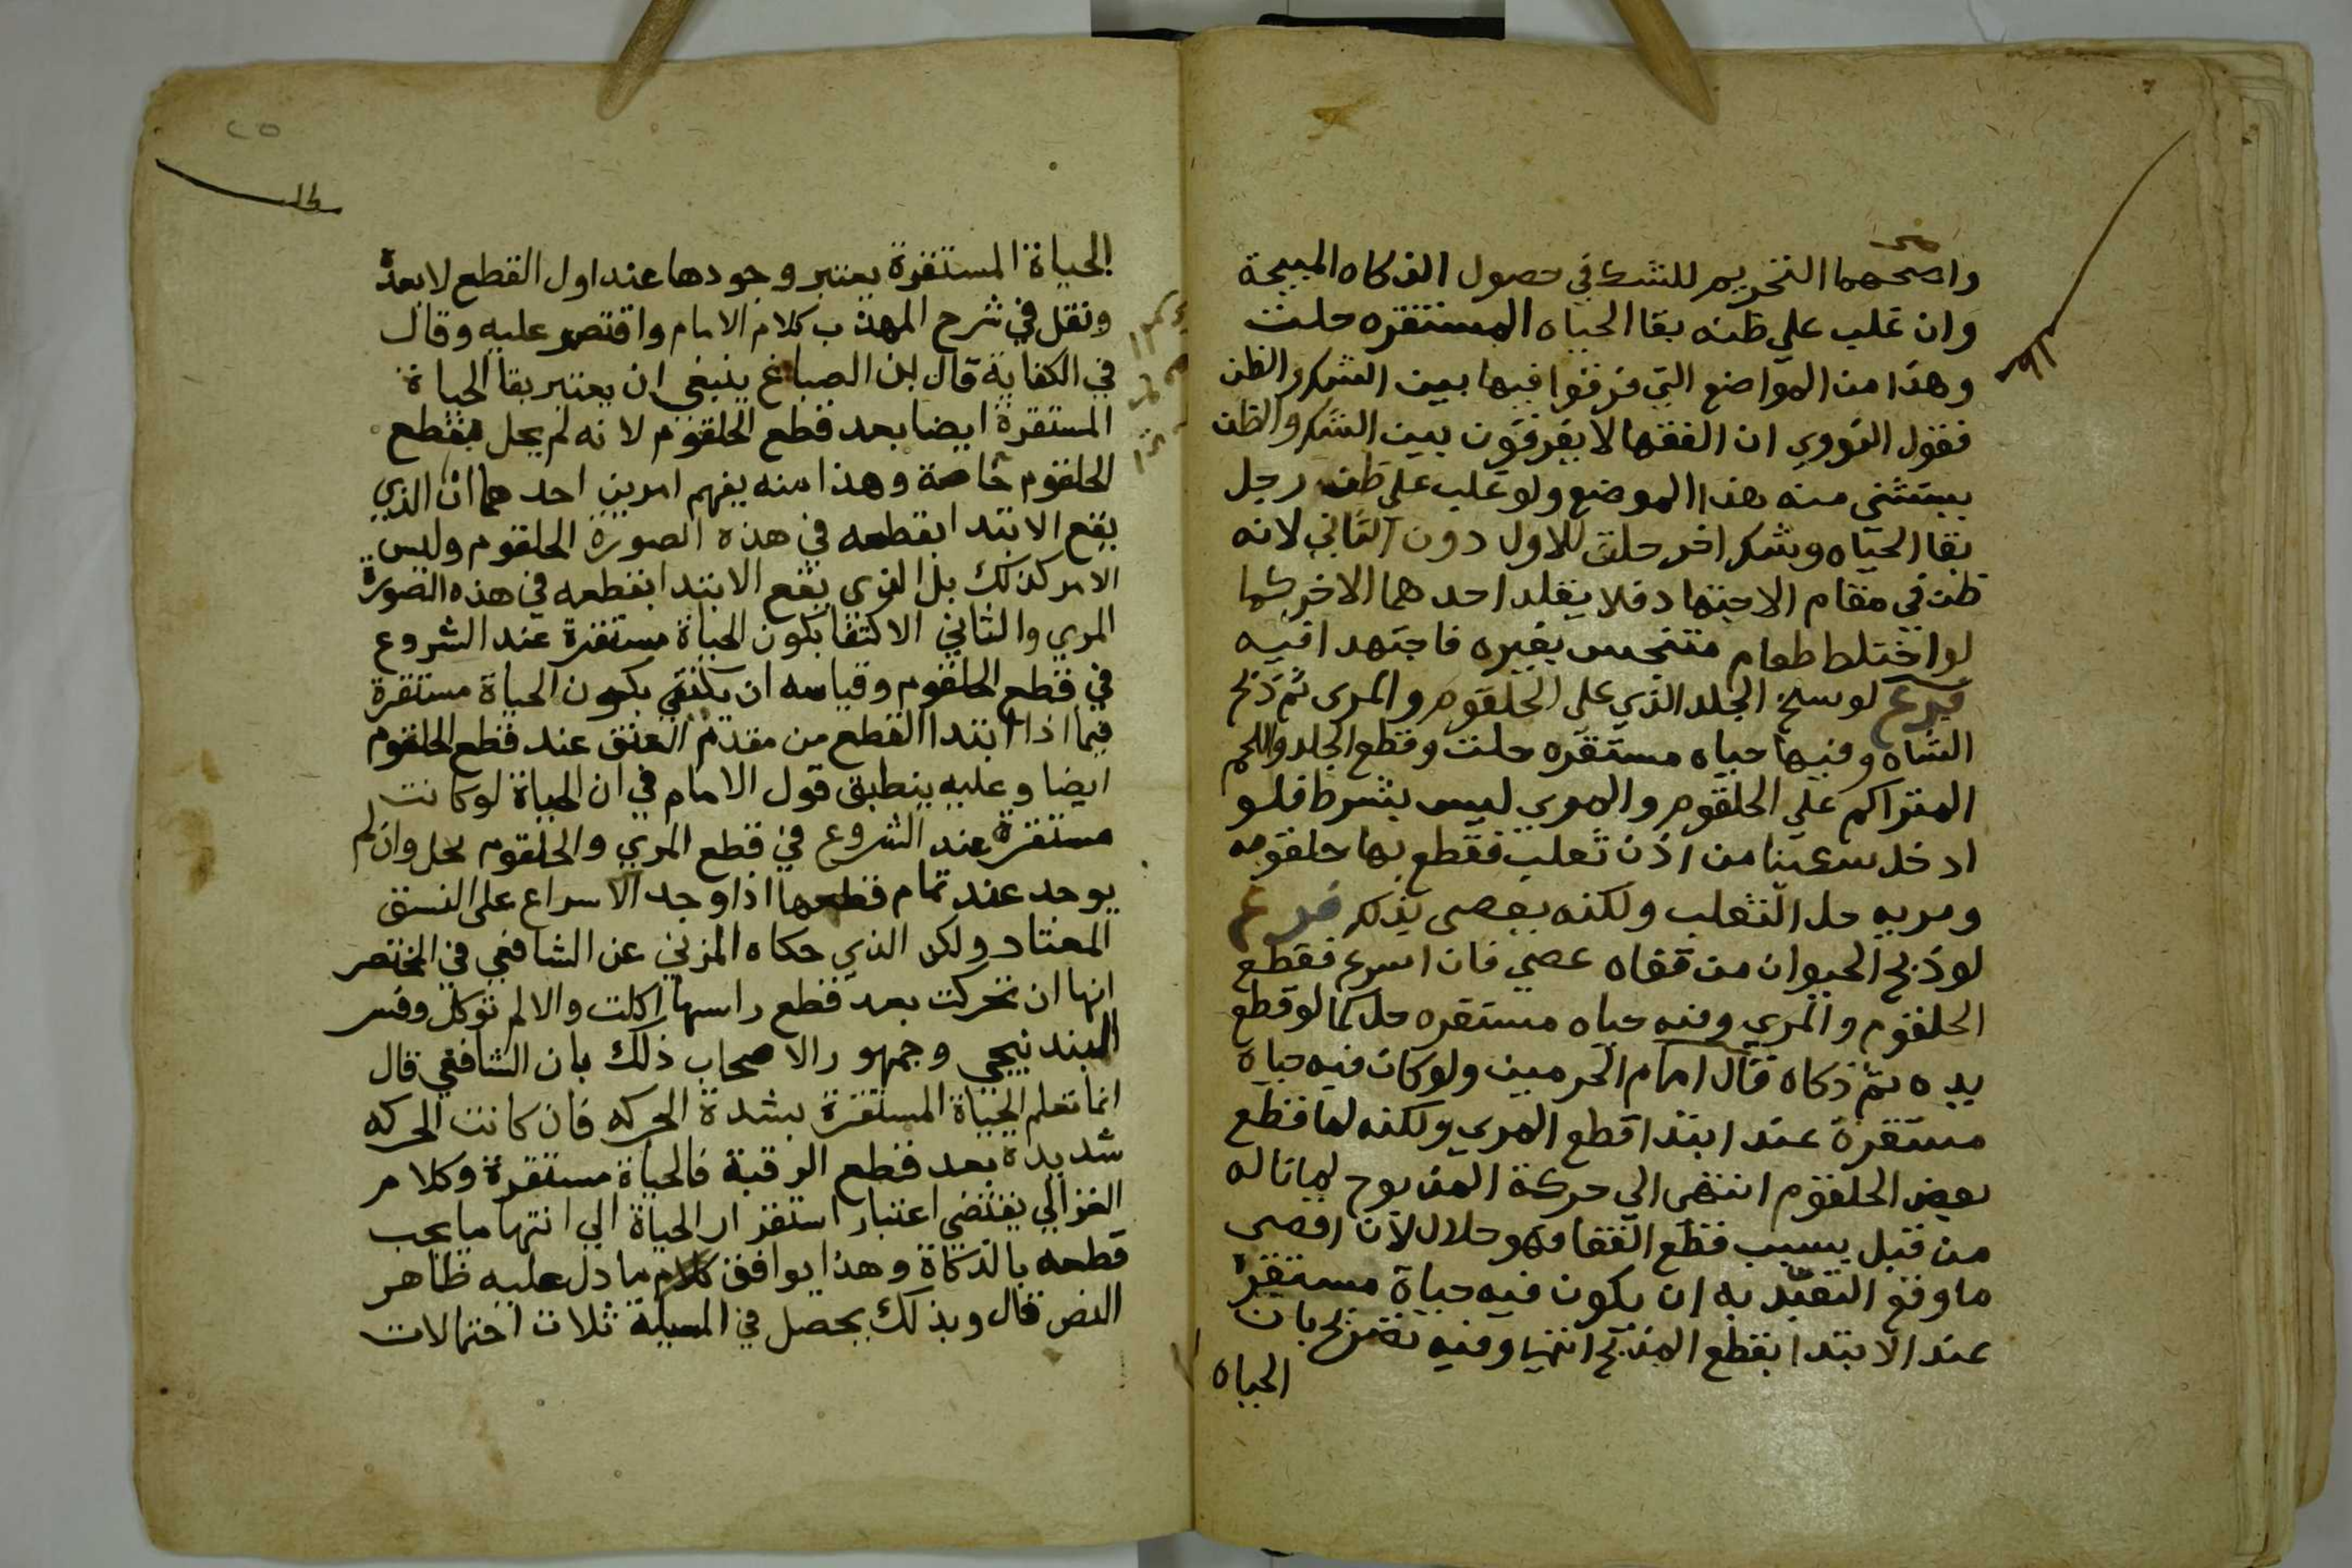 واصحهما التحريم للشك في حصول الذكاه المبيحة
وان غلب علي ظنه بقا الحياه المستقره حلت
وهذا من المواضع التي فرقوا فيها بين الشك والظن
فقول النووي ان الفقها لا يفرقون بين الشك والظن
يستثني منه هذا الموضع ولو غلب علي ظن رجل
بقا الحياه وشك اخر حلت للاول دون الثاني لانه
ظن في مقام الاجتهاد فلا يقلد احدهما الاخر كما
لو اختلط طعام متنجس بغيره فاجتهدا فيه
فرع لو سلخ الجلد الذي على الحلقوم والمرى ثم ذبح
الشاه وفيها حياه مستقره حلت وقطع الجلد واللحم
المتراكم علي الحلقوم والمري ليس بشرط فلو
ادخل سكينا من اذن ثعلب فقطع بها حلقومه
ومريه حل الثعلب ولكنه يعصى بذلك فرع
لو ذبح الحيوان من قفاه عصي فان اسرع فقطع
الحلقوم والمري وفيه حياه مستقره حل كما لو قطع
يده ثم ذكاه قال امام الحرمين ولو كان فيه حياة
مستقرة عند ابتدا قطع المري ولكنه لما قطع
بعض الحلقوم انتهى الي حركة المذبوح لما ناله
من قبل بسبب قطع القفا فهو حلال لان اقصى
ما وقع التعبد به ان يكون فيه حياة مستقرة
عند الابتدا بقطع المذبح انتهى وفيه تصريح بان
الحياه
٢٥
مطلب
الحياة المستقرة يعتبر وجودها عند اول القطع لا بعده
ونقل في شرح المهذب كلام الامام واقتصر عليه وقال
في الكفاية قال ابن الصباغ ينبغي ان يعتبر بقا الحياة
المستقرة ايضا بعد قطع الحلقوم لانه لم يحل بقطع
الحلقوم خاصة وهذا منه يفهم امرين احدهما ان الذي
يقع الابتدا بقطعه في هذه الصورة الحلقوم وليس
الامر كذلك بل الذي يقع الابتدا بقطعه في هذه الصورة
المري والثاني الاكتفا بكون الحياة مستقرة عند الشروع
في قطع الحلقوم وقياسه ان يكتفي بكون الحياة مستقرة
فيما اذا ابتدا القطع من مقدم العنق عند قطع الحلقوم
ايضا وعليه ينطبق قول الامام في ان الحياة لو كانت
مستقرة عند الشروع في قطع المري والحلقوم يحل وان لم
يوجد عند تمام قطعها اذا وجد الاسراع على النسق
المعتاد ولكن الذي حكاه المزني عن الشافعي في المختصر
انها ان تحركت بعد قطع راسها اكلت والا لم توكل وفسر
البندنيجي وجمهور الاصحاب ذلك بان الشافعي قال
انما تعلم الحياة المستقرة بشدة الحركه فان كانت الحركه
شديدة بعد قطع الرقبة فالحياة مستقرة وكلام
الغزالي يقتضي اعتبار استقرار الحياة الي انتها ما يجب
قطعه بالذكاة وهذا يوافق كلام ما دل عليه ظاهر
النص قال وبذلك يحصل في المسيلة ثلاث احتمالات